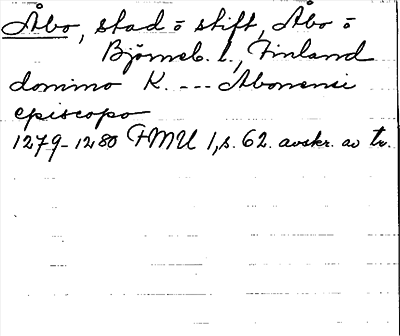 Åbo, stad o stift, Åbo o
Björneb. l., Finland
domino K. --- Aboensi
episcopo
1279-1280 FMU 1, s. 62. avskr. av tr.